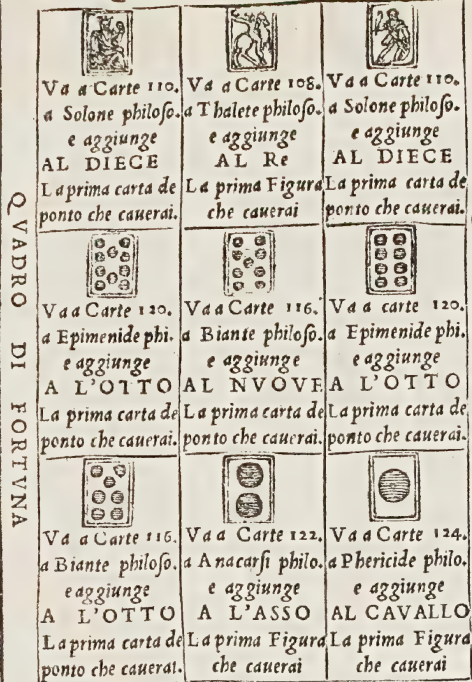 QVADRO DI FORTVNA
Va a Carte 110.
a Solone philoſo.
e aggiunge
AL DIECE
La prima carta de
ponto che cauerai.
Va a Carte 108.
a Thalete philoſo.
e aggiunge
AL Re
La prima Figura
che cauerai
Va a Carte 110.
a Solone philoſo.
e aggiunge
AL DIECE
La prima carta de
ponto che cauerai.
Va a Carte 120.
a Epimenide phi.
e aggiunge
A L'OTTO
La prima carta de
ponto che cauerai.
Va a Carte 116.
a Biante philoſo.
e aggiunge
AL NVOVE
La prima carta de
ponto che cauerai.
Va a carte 120.
a Epimenide phi.
e aggiunge
A L'OTTO
La prima carta de
ponto che cauerai.
Va a Carte 116.
a Biante philoſo.
e aggiunge
A L'OTTO
La prima carta de
ponto che cauerai.
Va a Carte 122.
a Anacarſi philo.
e aggiunge
A L'ASSO
La prima Figura
che cauerai
Va a Carte 124.
a Phericide philo.
e aggiunge
AL CAVALLO
La prima Figura
che cauerai